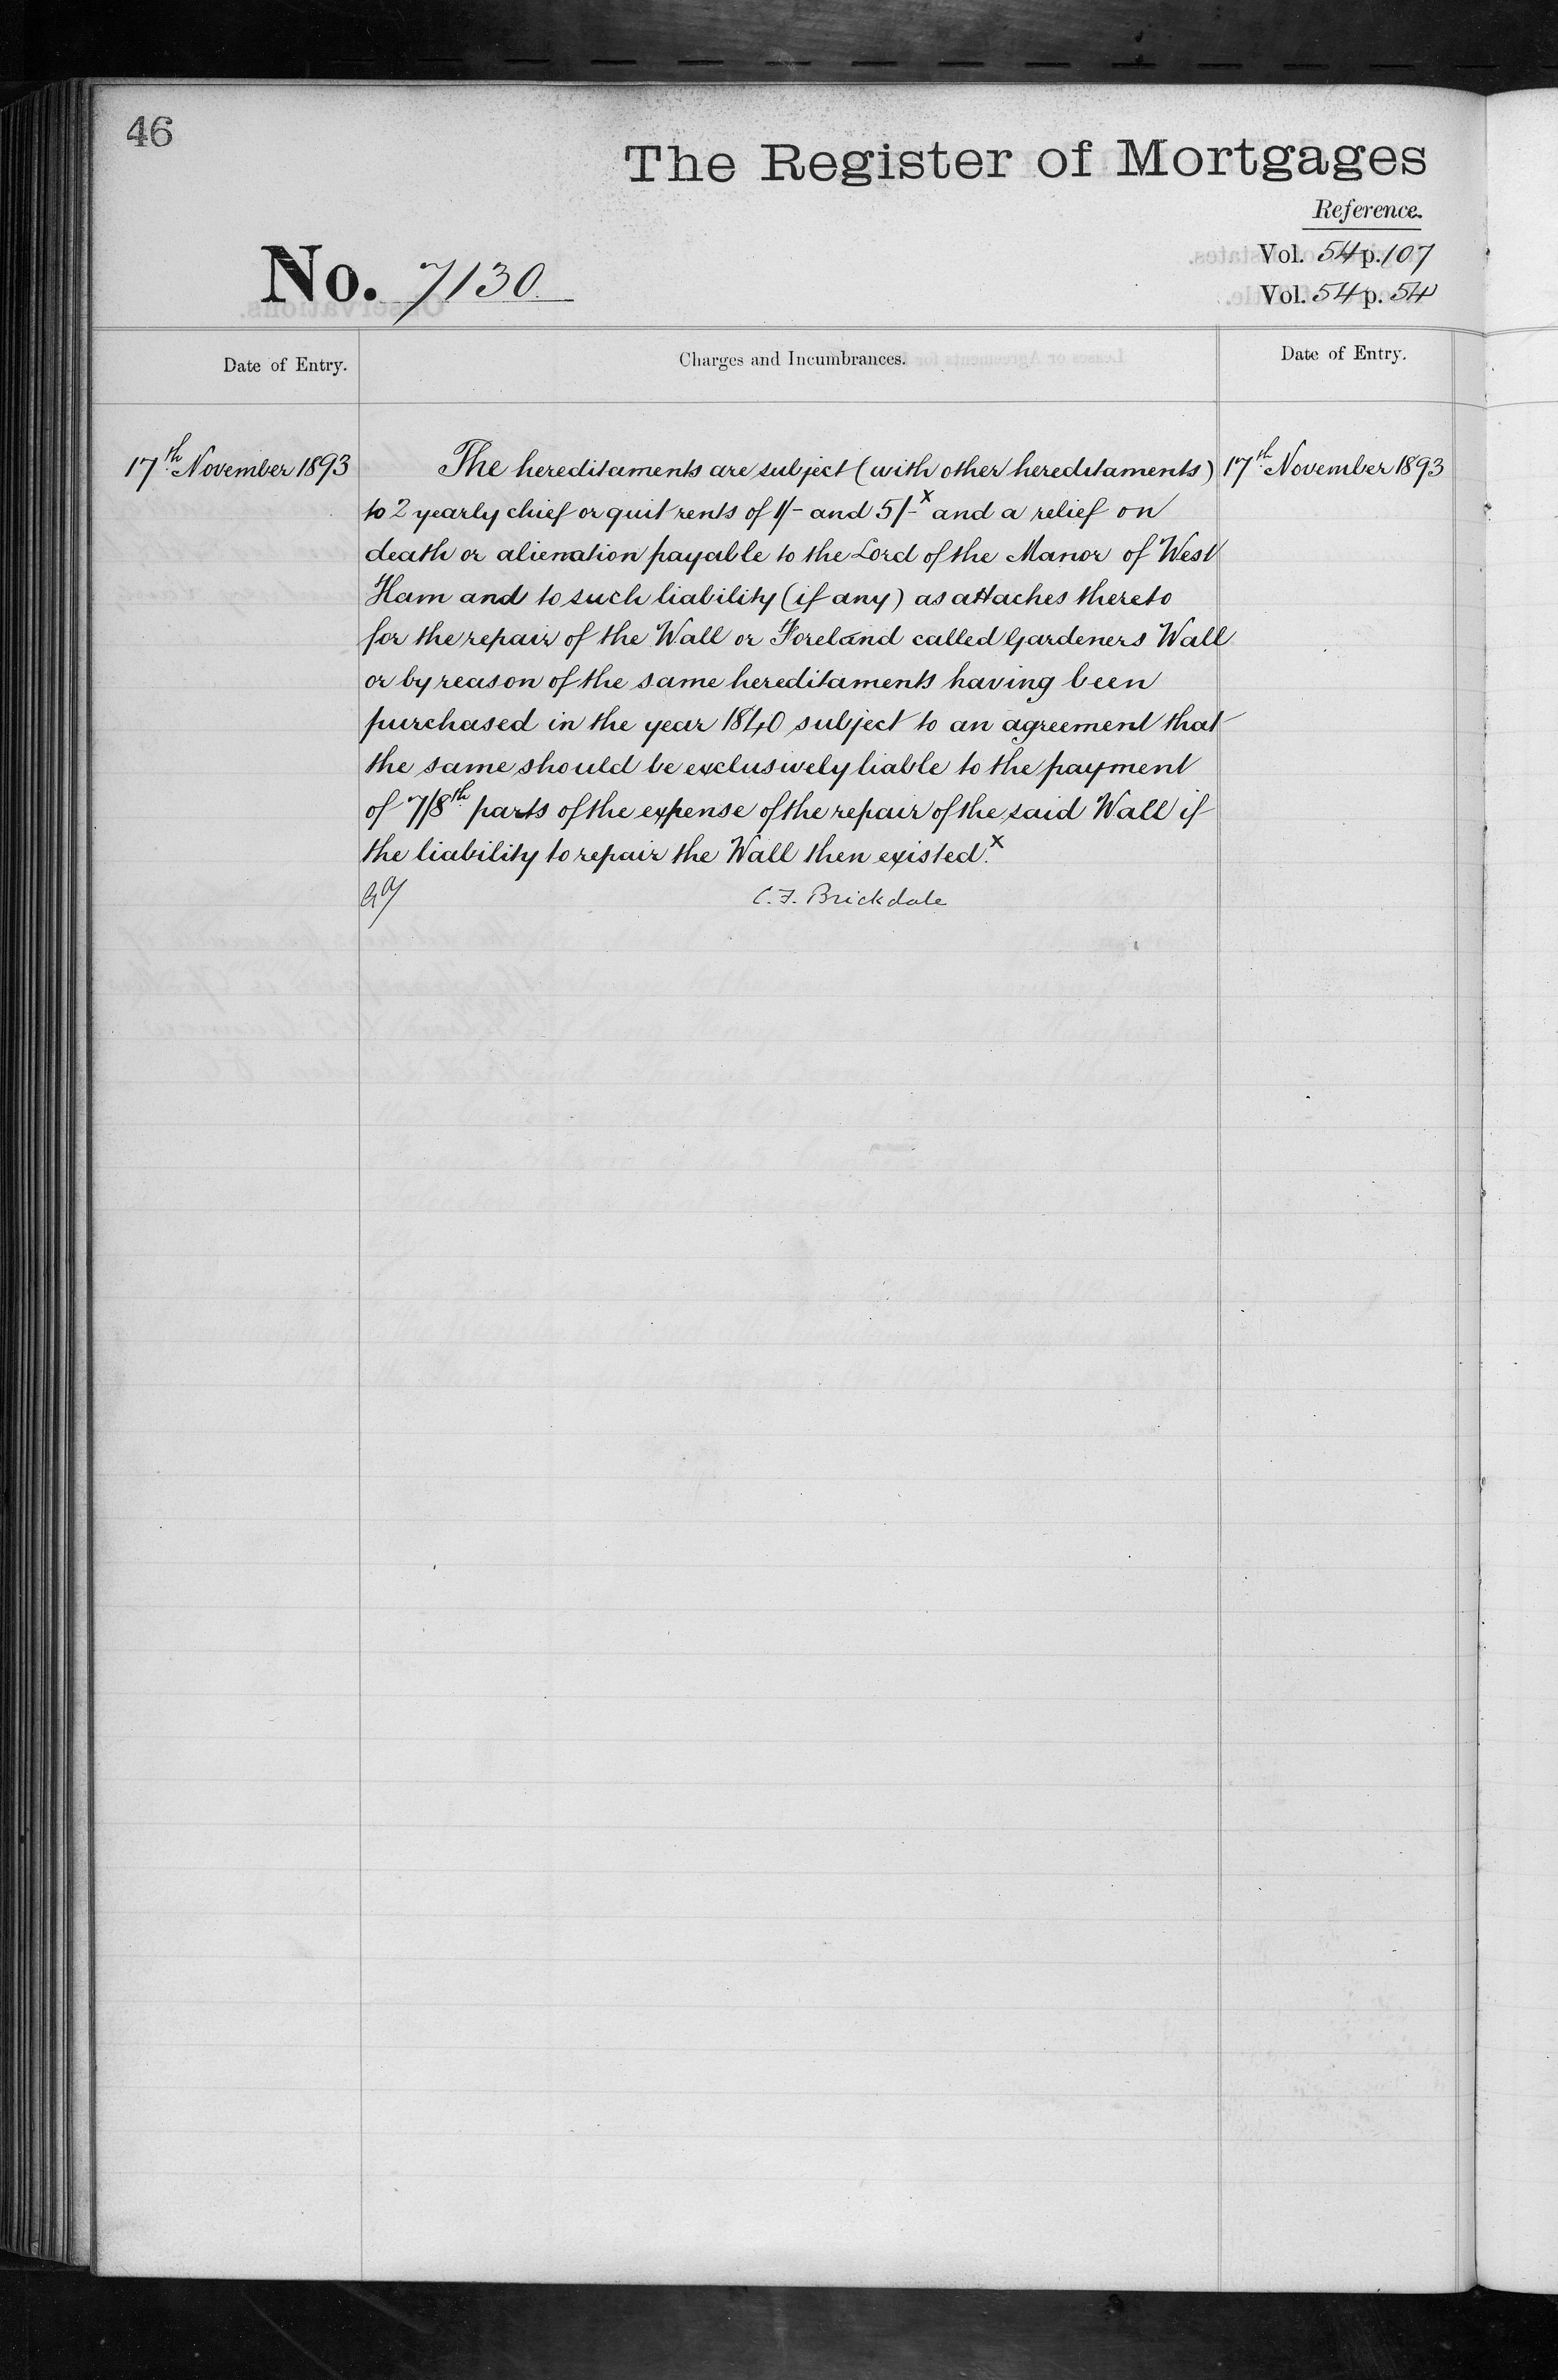 46
The Register of Mortgages
Reference.
Vol. 54 p. 107
No. 7130
Vol. 54 p. 54
Date of Entry.
Charges and Incumbrances.
Date of Entry.
17th November 1893
The hereditaments are subject (with other hereditaments)
17th November 1893
to 2 yearly chief or quit rents of 1/- and 5/-x and a relief on
death or alienation payable to the Lord of the Manor of West
Ham and to such liability (if any) as attaches thereto
for the repair of the Wall or Foreland called Gardeners Wall
or by reason of the same hereditaments having been
purchased in the year 1840 subject to an agreement that
the same should be exclusively liable to the payment
of 7/8th parts of the expense of the repair of the said Wall if
the liability to repair the Wall then existed.x
C. F. Brickdale